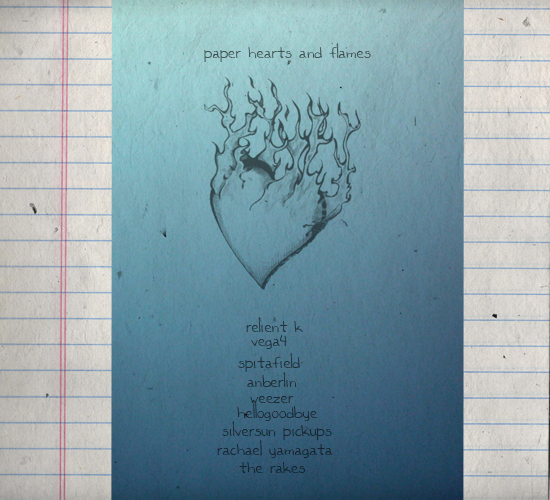 paper hearts and flames
relient k
vega4
spitafield
anberlin
weezer
hellogoodbye
silversun pickups
rachael yamagata
the rakes